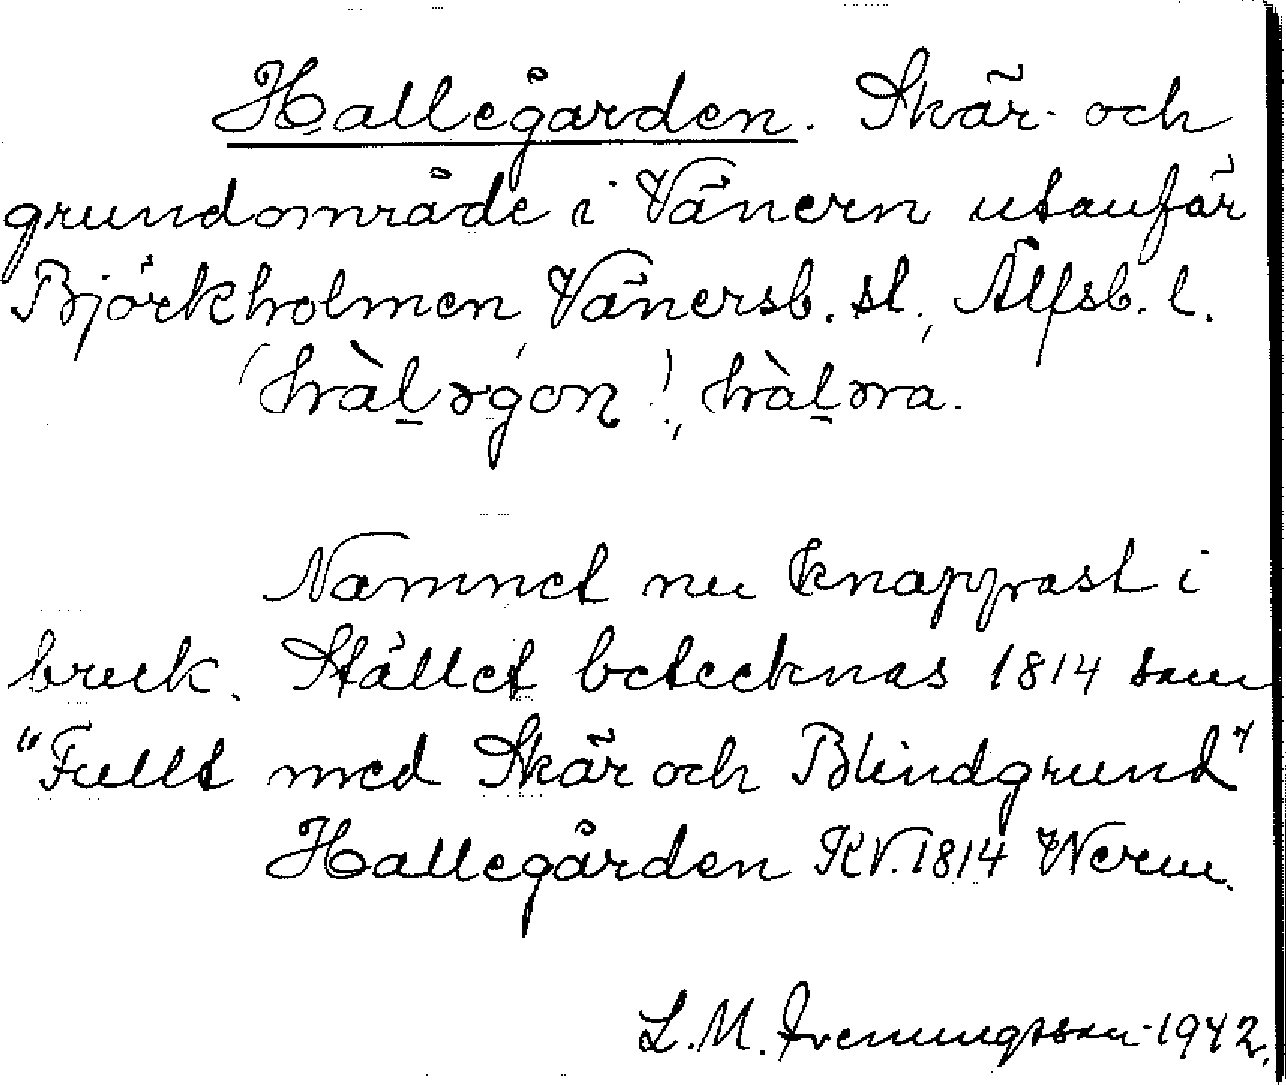 Hallegården. Skär- och
grundområde i Vänern utanför
Björkholmen, Vänersb. sl., Älfsb. l.
Namnet nu knappast i
bruk. Stället betecknas 1814 som
"Fullt med Skär och Blindgrund"
Hallegården KV. 1814 Wern.
L. M. 1942.